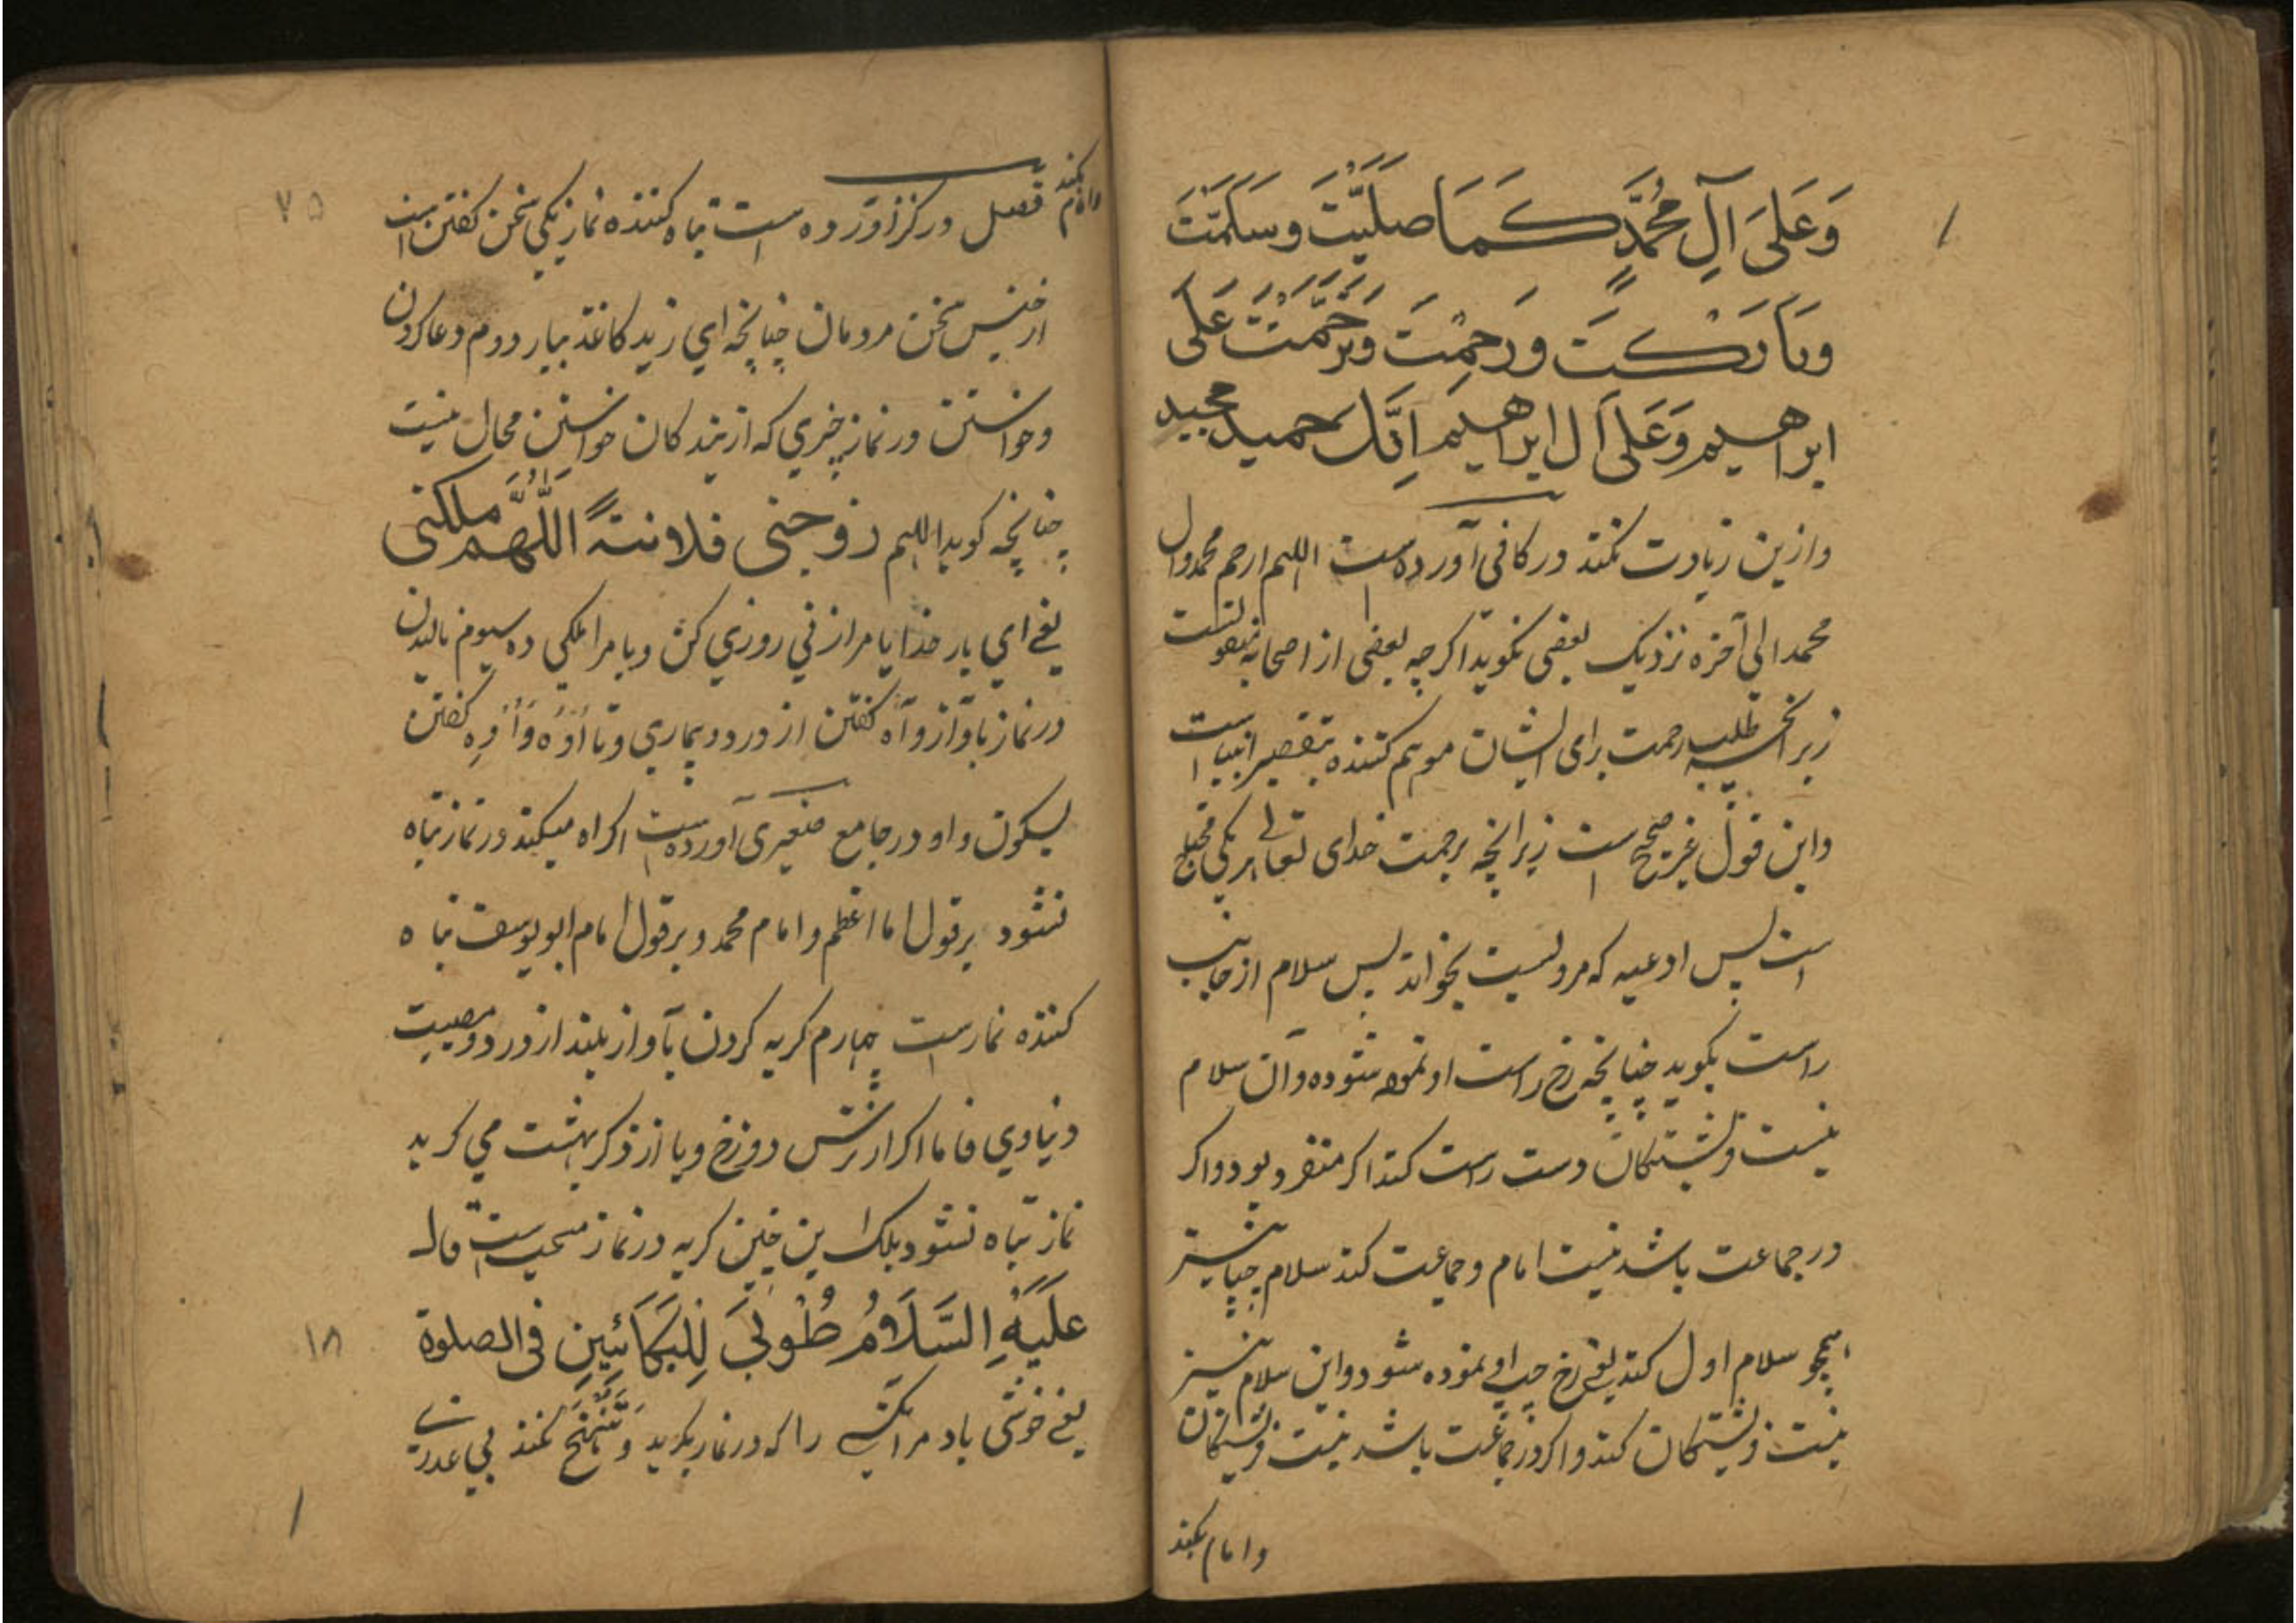 وَعَلىَ آلِ مُحَمَّدٍ كَمَا صَلَيَّتَ وَسَلَمَّتَ
وبَارَكْتَ ورَحِمْتَ وتَرَحَّمْتَ عَلَى
ابراهيم وَعَلىَ آل ابراهيم اِنَّكَ حميد مجيد
وازین زیادت نکند در کافی آورده است اللهم ارحم محمد وال
محمد الی آخره نزدیک بعضی نکوید اکرچه بعضی از اصحابنا
زیرانچه طلب رحمت برای ایشان موهم کننده تقصیر انبیا است
واین قول غیر صحیح است زیرانچه برحمت خدای تعالی هر یکی محتاج
است پس ادعیه که مرویست بخواند پس سلام از جانب
راست بکوید چنانچه رخ راست او نموده شود و آن سلام
نیت فرشتکان دست راست کند اکر منفرد بود و اکر
در جماعت باشد نیت امام و جماعت کند سلام چپا نیز
همچو سلام اول کند یعنی رخ چپ او نموده شود و این سلام نیز
نیت فرشتکان کند و اکر در جماعت باشد نیت فرشتکان
وامام بکند
وامام بکند فصل در کنز آورده است تباه کننده نماز یکی سخن کفتن است
از جنس سخن مردمان چنانچه ای زید کاغذ بیار دوم دعا کردن
وخواستن در نماز چیزی که از بندکان خواستن محال نیست
چنانچه کوید اللهم زوجنی فلانتةً اللَّهُمَّ ملكنى
یعنی ای بار خدایا مرا زنی روزی کن و یا مرا ملکی ده سیوم نالیدن
در نماز بآواز و آه کفتن از درد و بیماری و یا اُوَه وَاُوْه کفتن
بسکون واو در جامع صغیری آورده است اکر اه میکند در نماز تباه
نشود بر قول اما اعظم و امام محمد و بر قول امام ابو یوسف تباه
کننده نماز است چهارم کریه کردن بآواز بلند از درد و مصیبت
دنیاوی فاما اکر از ترس دوزخ و یا از ذکر بهشت می کرید
نماز تباه نشود بلک این چنین کریه در نماز مستحب است قال
عَلَيْهِ السَّلَامُ طُوْبىَ لِلبَكَائينِ فى الصلوة
یعنی خوشی باد مر آنکسی را که در نماز بکرید وتَنَحْنُح نکند بی عذری
۷۵
۱۸